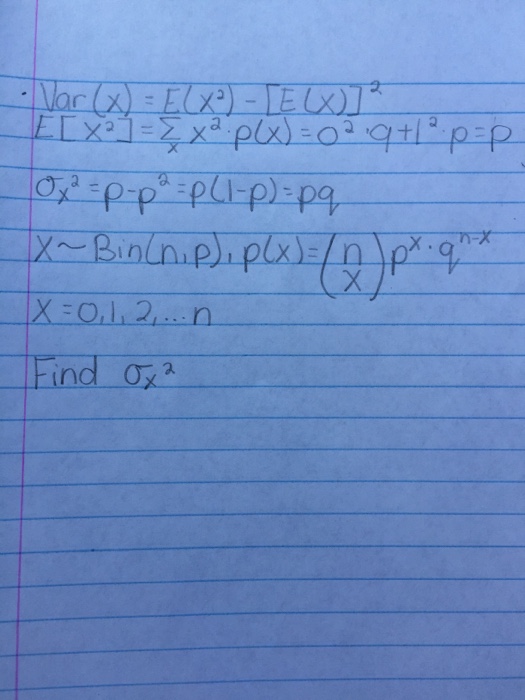 · Var(x) = E(x²) - [E(x)]²
E[x²] = Σₓ x² · p(x) = 0² · q + 1² · p = p
σₓ² = p - p² = p(1-p) = pq
X ~ Bin(n,p), p(x) = (n x) pˣ · qⁿ⁻ˣ
X = 0, 1, 2, ... n
Find σₓ²